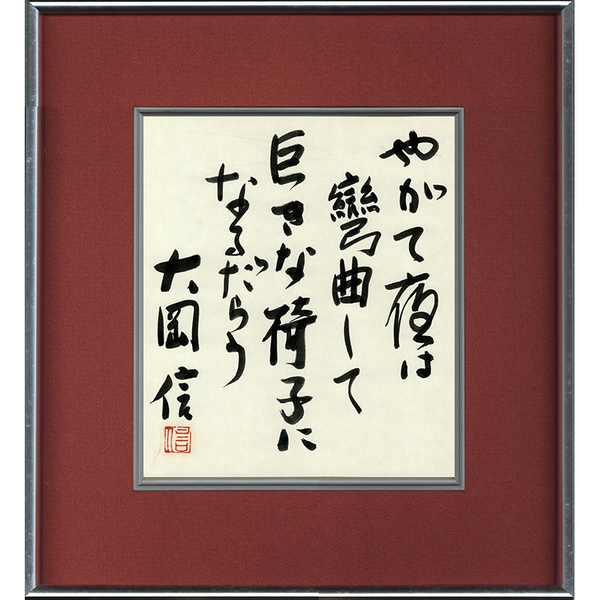 やがて夜は
彎曲して
巨きな椅子に
なるだらう
大岡信
信